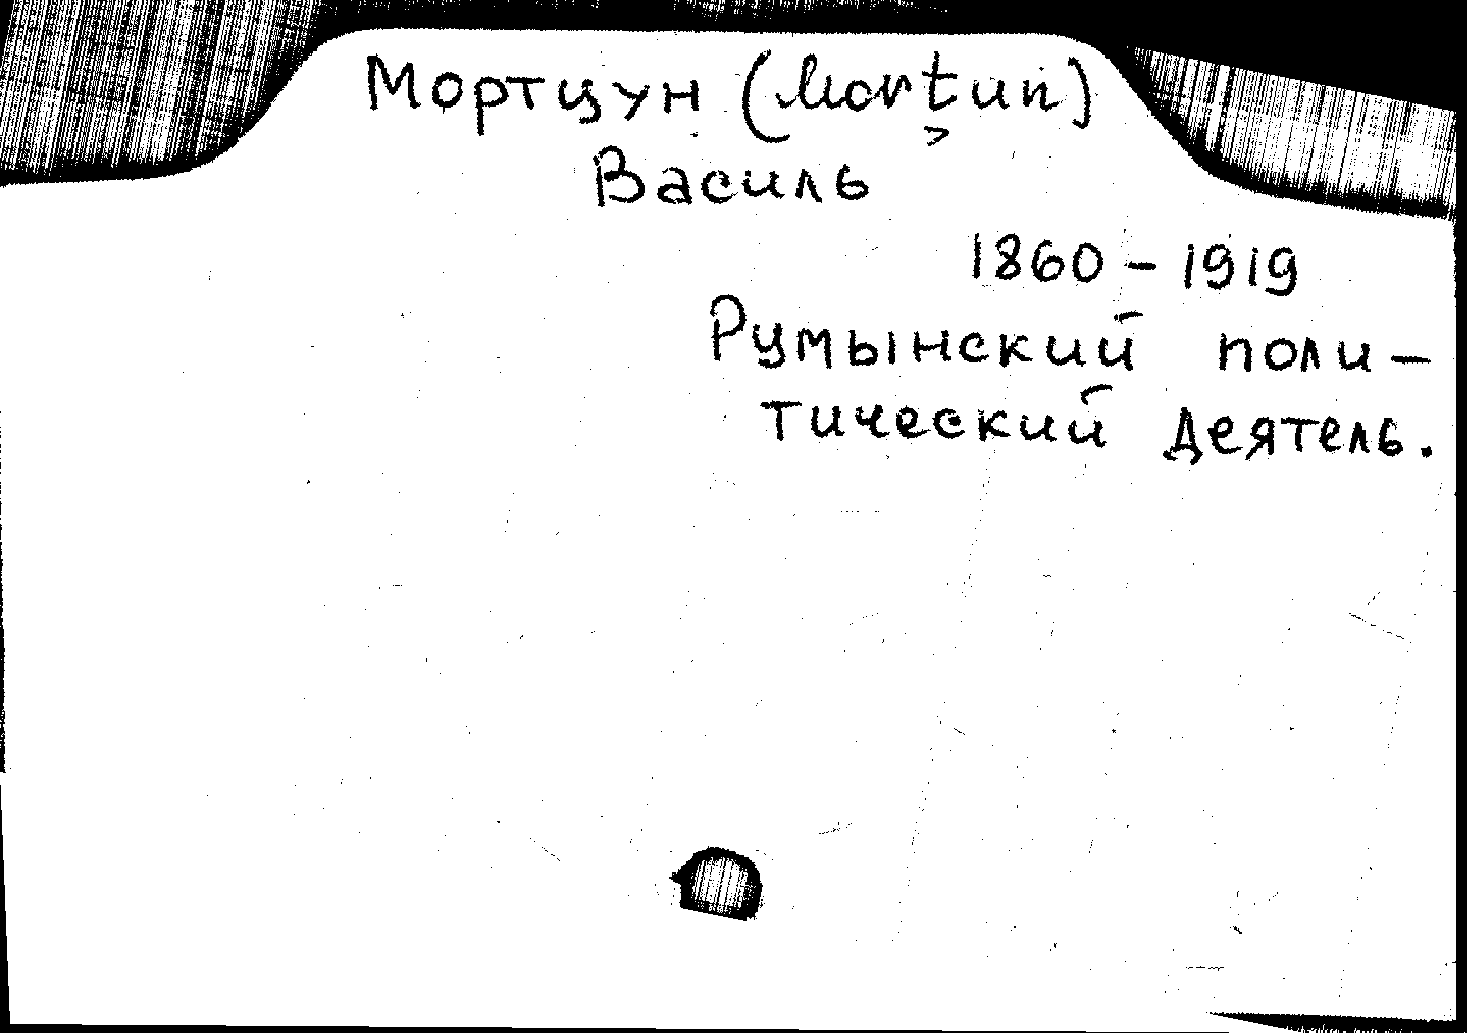 Мортцун (Morţun)
Василь
1860 – 1919
Румынский поли–
тический деятель.